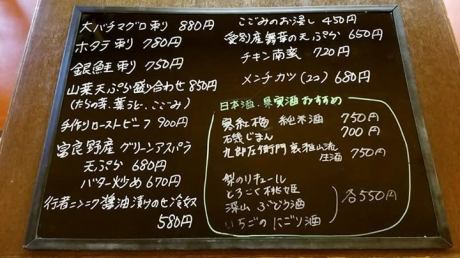 大バチマグロ刺り 880円
ホタテ刺り 780円
銀鮭刺り 750円
山菜天ぷら盛り合わせ 850円
(たらの芽、葉うど、こごみ)
手作りローストビーフ 900円
富良野産グリーンアスパラ
天ぷら 680円
バター炒め 670円
行者ニンニク醤油漬けのせ冷奴
580円
こごみのお浸し 450円
愛別産舞茸の天ぷら 650円
チキン南蛮 720円
メンチカツ(2コ) 680円
日本酒、果実酒おすすめ
寒紅梅 純米酒 750円
石鎚じまん 700円
九郎左衛門 裏雅山流
生酒 750円
梨のリキュール
とろこく桃姫
深山ぶどう酒
いちごのにごり酒
各550円